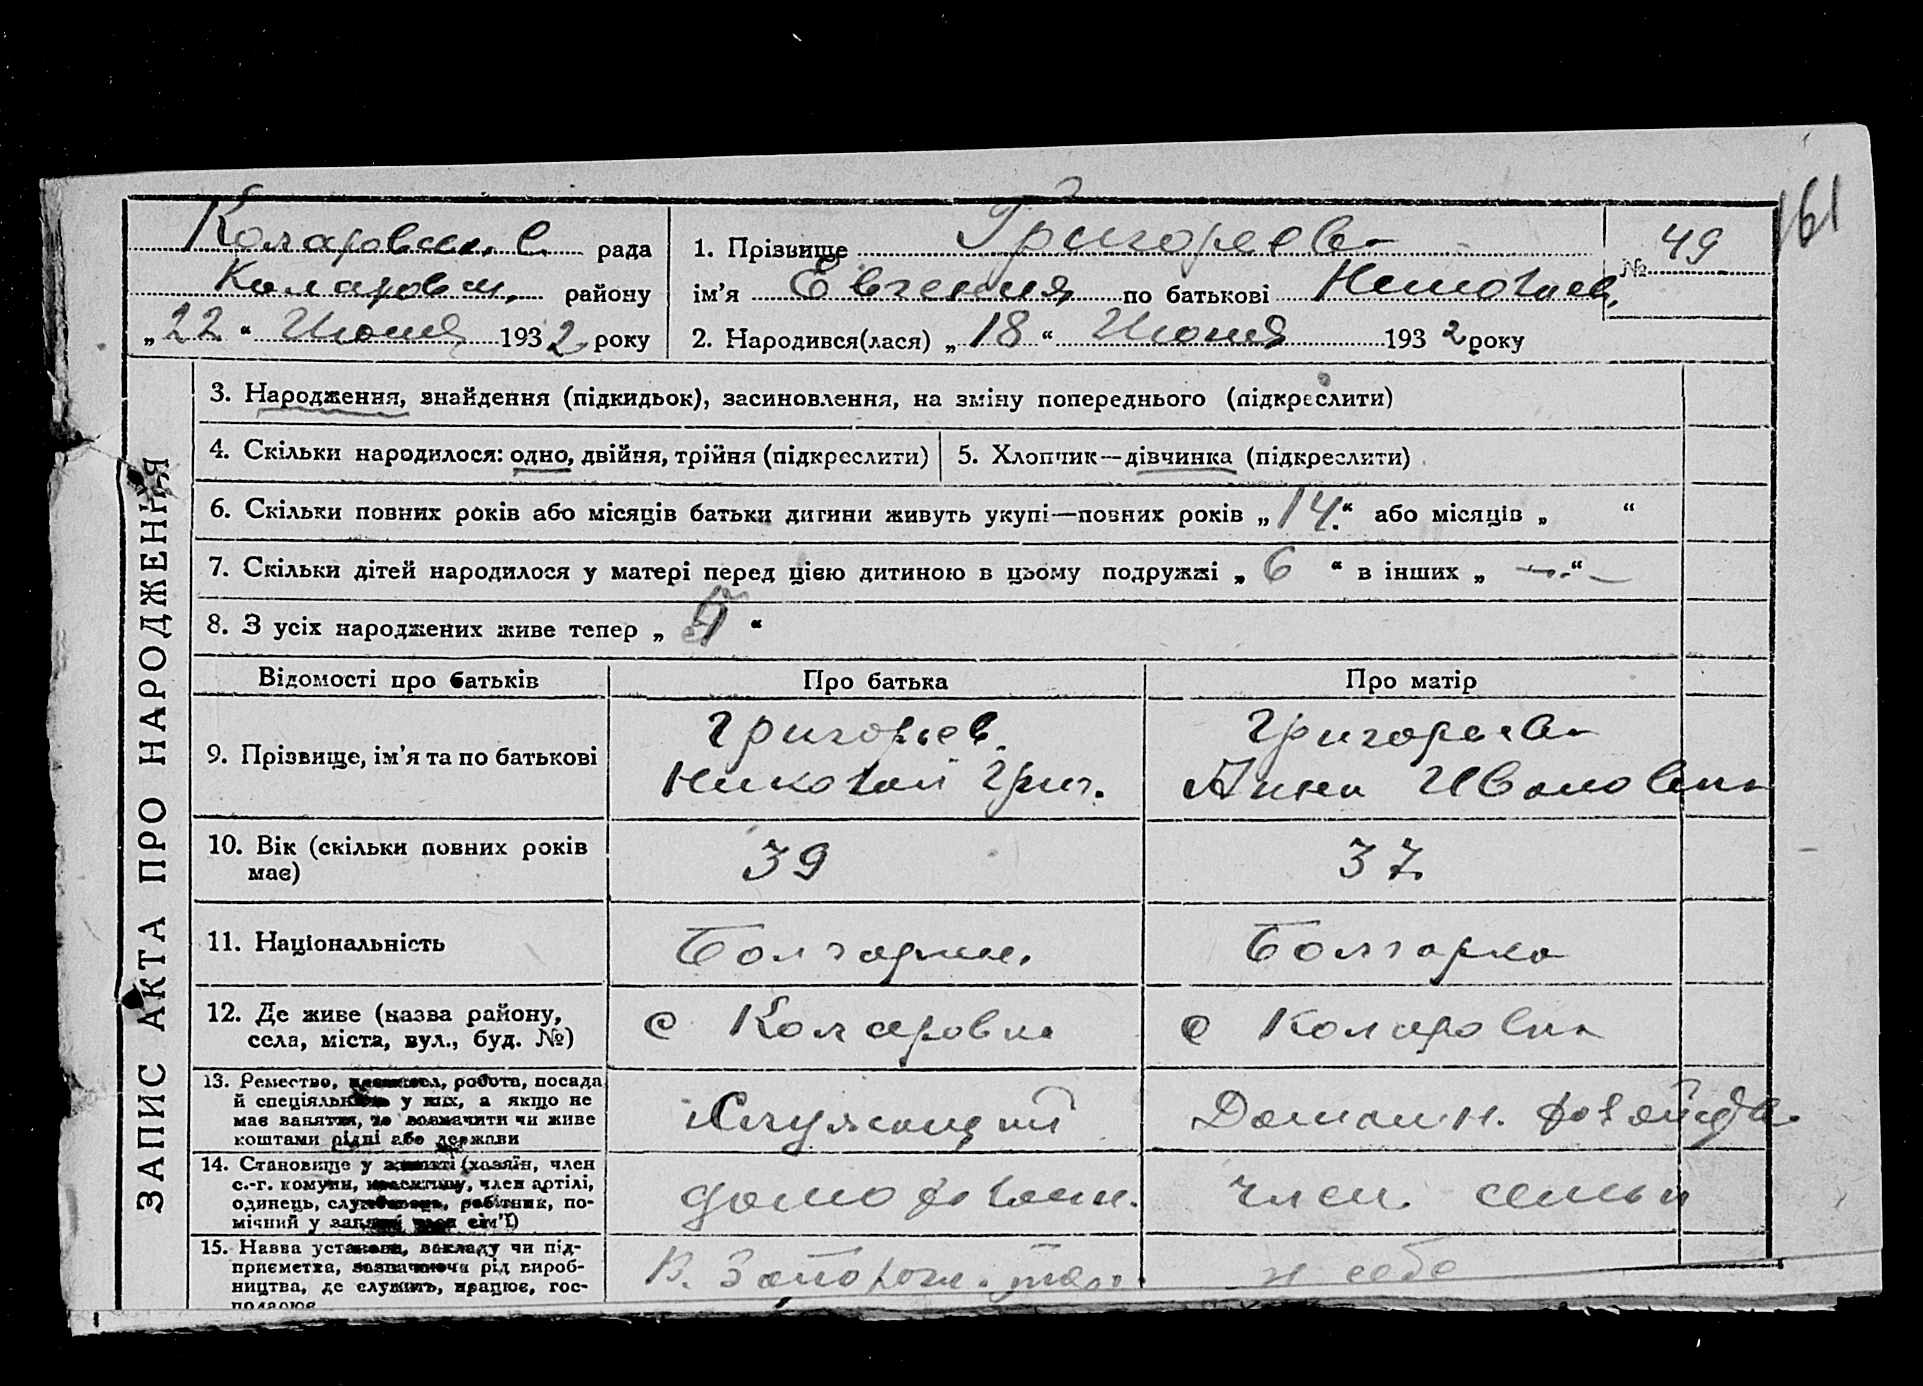 161
Коларовск. с рада
Коларовск. району
„22“ Июня 1932 року
1. Прізвище Григорьева
ім'я Евгения по батькові Николаев.
2. Народився(лася) „18“ Июня 1932 року
№ 49
ЗАПИС АКТА ПРО НАРОДЖЕННЯ
3. Народження, знайдення (підкидьок), засиновлення, на зміну попереднього (підкреслити)
4. Скільки народилося: одно, двійня, трійня (підкреслити)
5. Хлопчик—дівчинка (підкреслити)
6. Скільки повних років або місяців батьки дитини живуть укупі—повних років „14.“ або місяців „ “
7. Скільки дітей народилося у матері перед цією дитиною в цьому подружжі „6“ в інших „—“
8. З усіх народжених живе тепер „5“
Відомості про батьків Про батька Про матір
9. Прізвище, ім'я та по батькові
Григорьев
Николай Григ.
Григорьева
Анна Ивановна
10. Вік (скільки повних років
має)
39
37
11. Національність
Болгарин.
Болгарка
12. Де живе (назва району,
села, міста, вул., буд. №)
с Коларовка
с Коларовка
13. Ремество, робота, посада
й спеціяльність у них, а якщо не
має заняття, то зазначити чи живе
коштами рідні або держави
Служащий
Домашн.
14. Становище у занятті (хазяїн, член
с.-г. комуни, колективу, член артілі,
одинець, службовець, робітник, по-
мічний у занятті член сім'ї)
домохозяин.
член семьи
15. Назва установи, закладу чи під-
приємства, зазначаючи рід вироб-
ництва, де служить, працює, гос-
подарює
В.
у себе